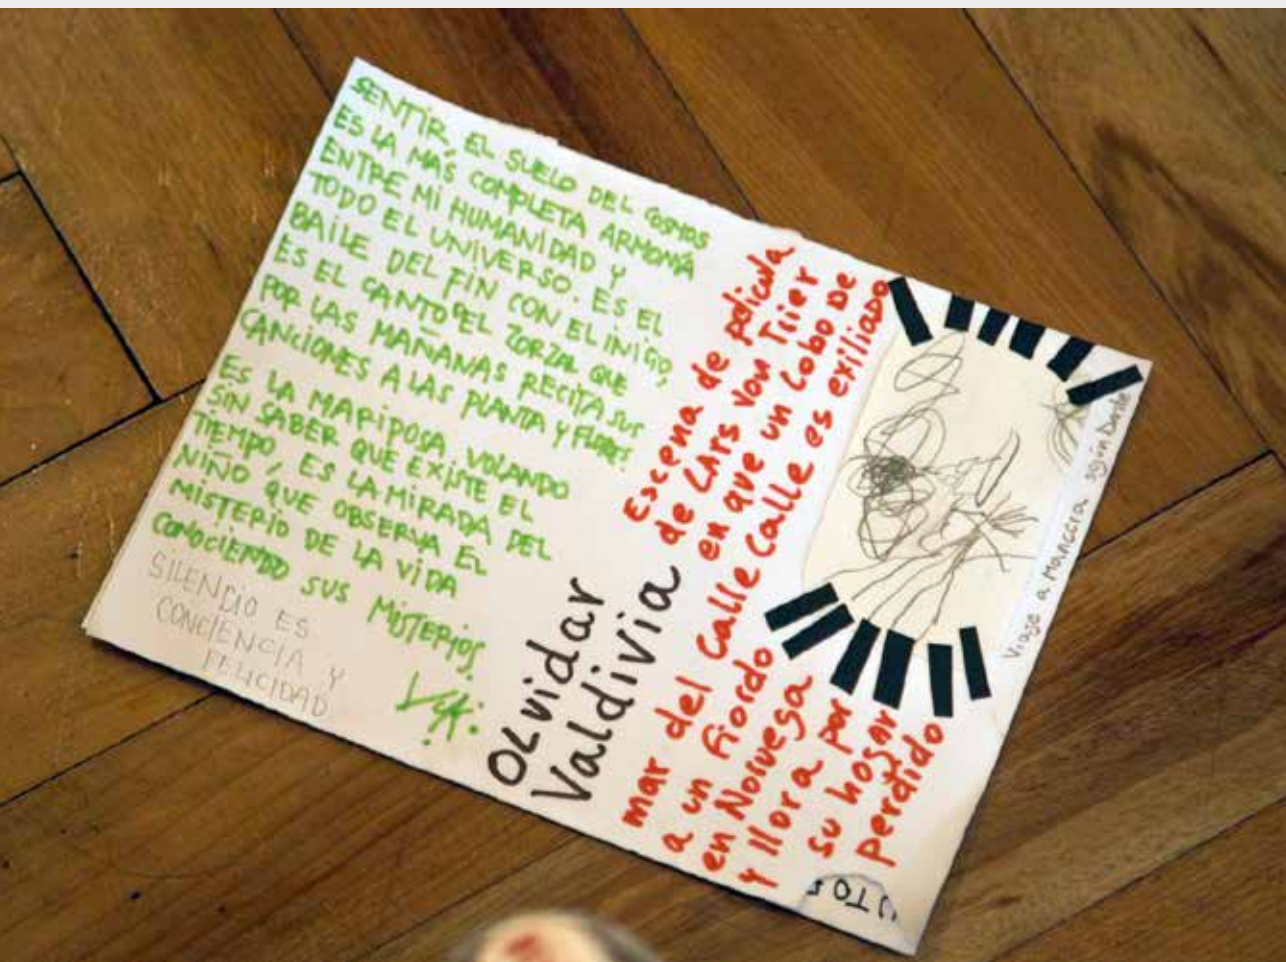 SENTIR, EL SUELO DEL COSMOS
ES LA MÁS COMPLETA ARMONÍA
ENTRE MI HUMANIDAD Y
TODO EL UNIVERSO. ES EL
BAILE DEL FIN CON EL INICIO,
ES EL CANTO DEL ZORZAL QUE
POR LAS MAÑANAS RECITA SUS
CANCIONES A LAS PLANTA Y FLORES.
ES LA MARIPOSA VOLANDO
SIN SABER QUE EXISTE EL
TIEMPO, ES LA MIRADA DEL
NIÑO QUE OBSERVA EL
MISTERIO DE LA VIDA
CONOCIENDO SUS MISTERIOS.
SILENCIO ES
CONCIENCIA Y
FELICIDAD
OLvidar
Valdivia
Escena de película
de LArs von Trier
en que un Lobo DE
mar del Calle Calle es exiliado
a un Fiordo
en Noruega
y llora por
su hogar
perdido
Viaje a Manccra según Dante